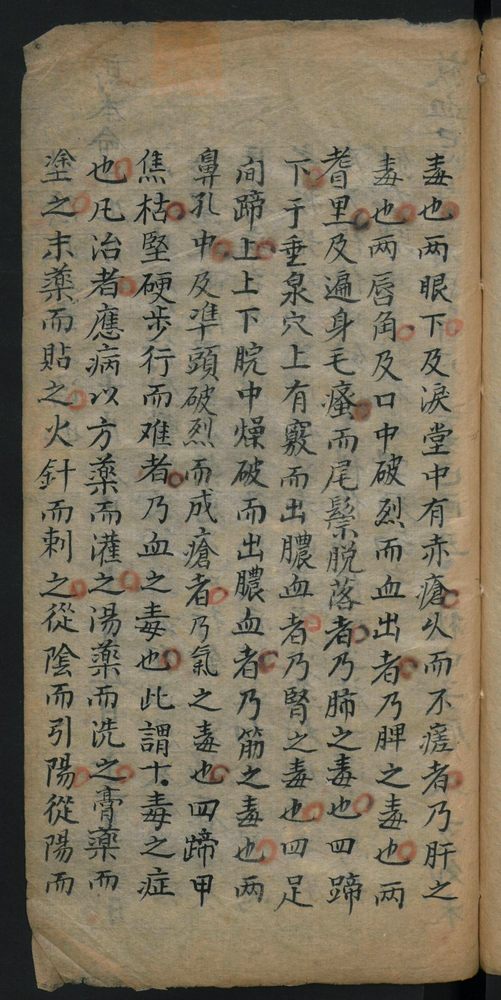 毒也两眼下及淚堂中有赤瘡久而不瘥者乃肝之
毒也两唇角及口中破烈而血出者乃脾之毒也两
耆里及遍身毛瘙而尾鬃脱落者乃肺之毒也四蹄
下于垂泉穴上有竅而出膿血者乃腎之毒也四足
间蹄上上下腕中燥破而出膿血者乃筋之毒也两
鼻孔中及準頭破烈而成瘡者乃氣之毒也四蹄甲
焦枯堅硬步行而难者乃血之毒也此謂十毒之症
也凡治者應病以方藥而灌之湯藥而洗之膏藥而
塗之末藥而貼之火針而刺之從陰而引陽從陽而